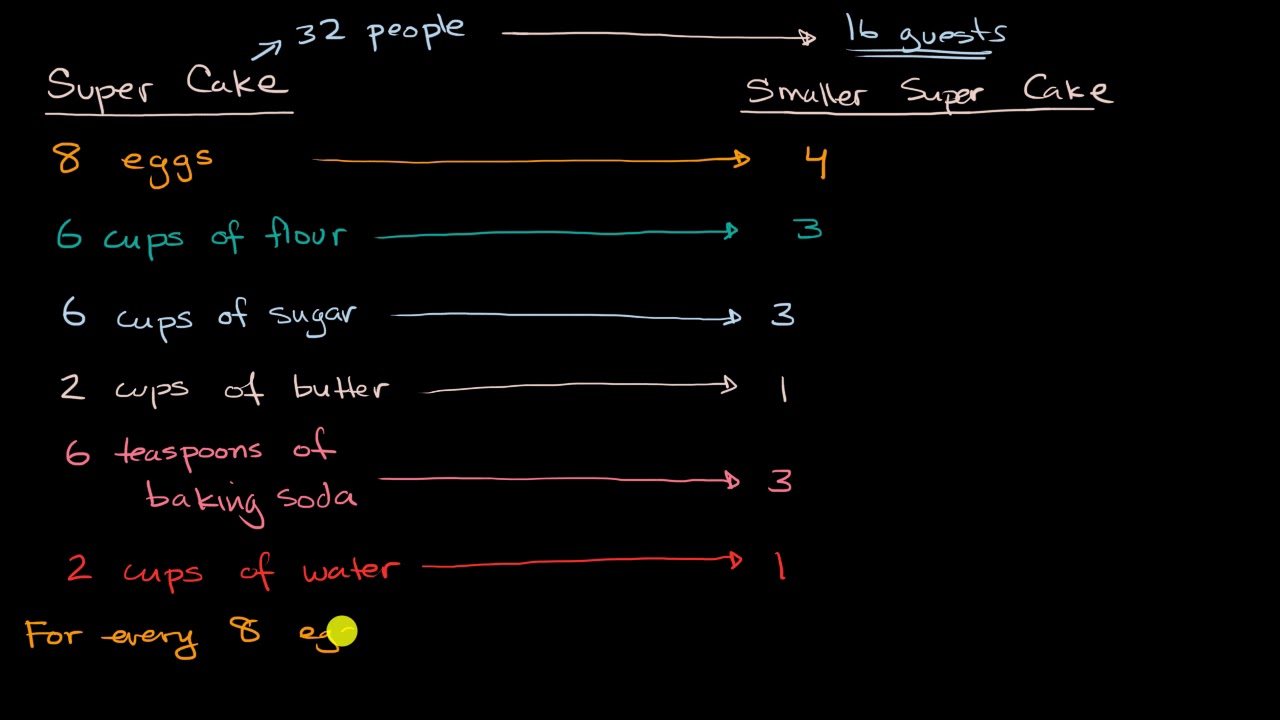 32 people 16 guests
Super Cake Smaller Super Cake
8 eggs 4
6 cups of flour 3
6 cups of sugar 3
2 cups of butter 1
6 teaspoons of
baking soda 3
2 cups of water 1
For every 8 eg